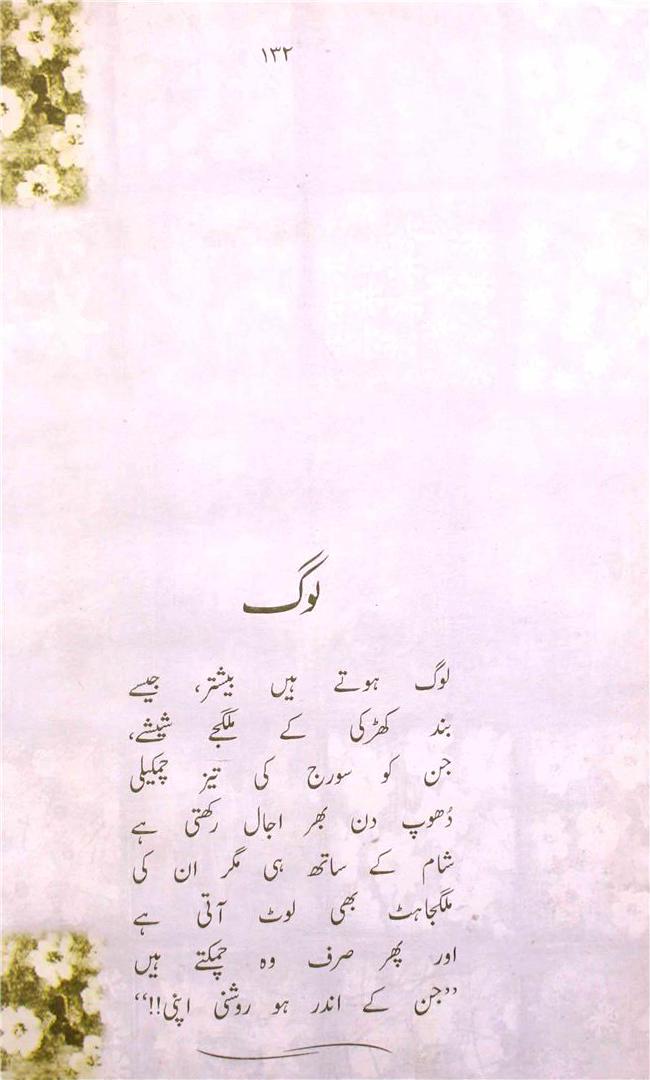 ۱۳۲
لوگ
لوگ ہوتے ہیں بیشتر، جیسے
بند کھڑکی کے ملگجے شیشے،
جن کو سورج کی تیز چمکیلی
دُھوپ دن بھر اجال رکھتی ہے
شام کے ساتھ ہی مگر ان کی
ملگجاہٹ بھی لوٹ آتی ہے
اور پھر صرف وہ چمکتے ہیں
”جن کے اندر ہو روشنی اپنی!!“